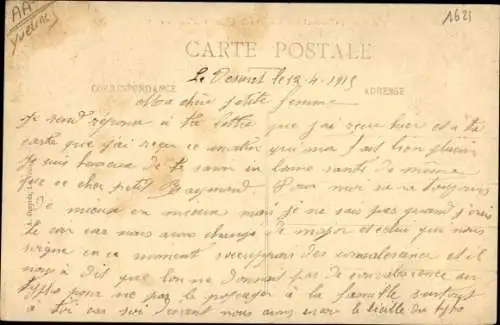 AA
Yvelines
1621
CARTE POSTALE
Le Vesinet le 12-4-1915
CORRESPONDANCE
ADRESSE
Ma chère petite femme
Je rend réponse à ta lettre que j'ai reçu hier et à ta
carte que j'ai reçu ce matin qui m'a fait bien plaisir
Je suis heureux de te savoir en bonne santé de même
que ce cher petit Raymond. Pour moi sa va toujours
de mieux en mieux mais je ne sais pas quand j'irai
le car car nous avons changé de major et celui qui nous
soigne en ce moment des convalescence et il
nous à dit que l'on ne donnait pas de convalescence au
typho pour ne pas le propager à la famille surtout
à toi car soi nous avons